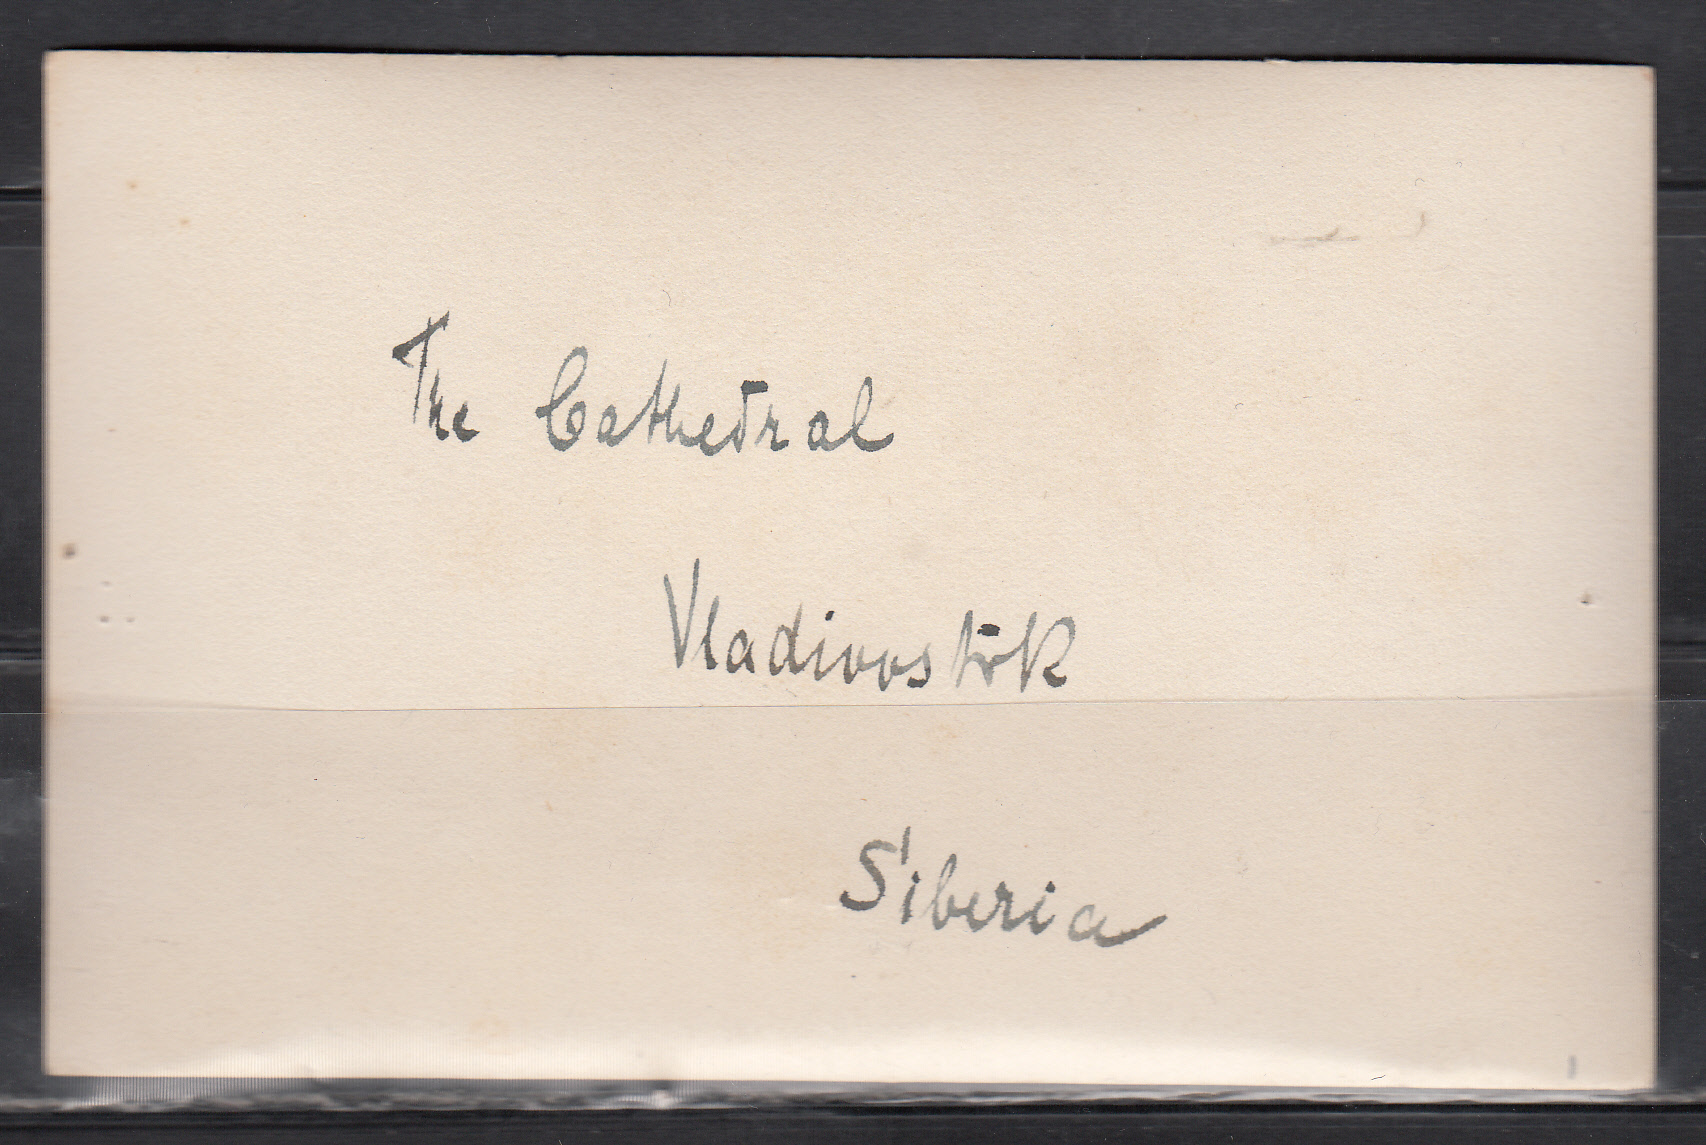 The Cathedral
Vladivostok
Siberia